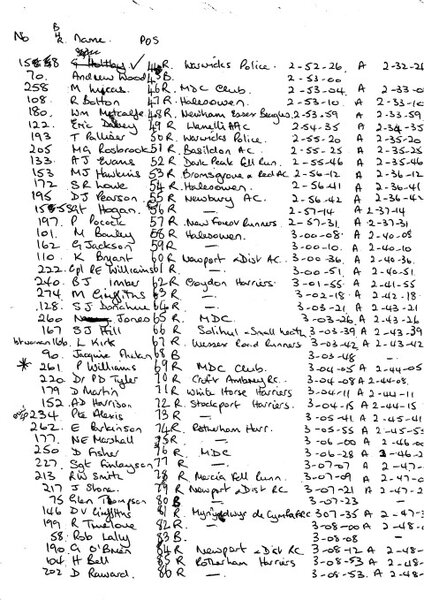 No B R. Name. POS
G Holtby 46 R. Warwicks Police. 2-52-26. A 2-32-26
70. Andrew Wood 45 B. 2-53-00
258 M 46 R. MDC Club. 2-53-04. A 2-33-0
108. R Bolton 47 R. Halesowen. 2-53-10. A 2-33-10
180. Wm Metcalfe 48 R. Newham Essex Beagles 2-53-59. A 2-33-59
122. Eric 49 R. Llanelli AAC. 2-54-35 A 2-34-35
193 J 50 R. Warwicks Police. 2-55-20 A 2-35-20
205 MG Rosbrook 51 R. Basildon. 2-55-25 A 2-35-25
133. AJ Evans 52 R. Dark Peak Fell Run. 2-55-46 A 2-35-46
153 MJ Hawkins 53 R Bromsgrove & Red AC. 2-56-12 A 2-36-12
172 SR Lowe 54 R. Halesowen. 2-56-41 A 2-36-41
195 DJ Pearson. 55 R. Newbury AC. 2-56.42 A 2-36-42
Sgt Hogan. 56 R — 2-57-14 A 2-37-14
197. P Pocock. 57 R. New Forest Runners 2-57-31. A 2-37-31
101. M Bayley 58 R Halesowen. 3-00-08. A 2-40-08
162 G Jackson 59 R — 3-00-10. A 2-40-10
110. K Bryant 60 R Newport & Dist AC. 3-00-36. A 2-40-36.
222. Cpl RE Williams 61 R — 3-00-51. A 2-40-51
240. BJ Imber 62 R Croydon Harriers 3-01-55. A 2-41-55
274. M Griffiths 63 R — 3-02-18. A 2-42-18
128. SJ Donahue 64 R. — 3-03-21 A 2-43-21
260 N Jones 65 R. MDC. 3-03-26 A 2-43-26
167 SJ Hill 66 R Solihul & Small Heath 3-03-39 A 2-43-39
166. L Kirk 67 R Wessex Road Runners 3-03-42 A 2-43-42
90. Jacquie 68 B — 3-03-48 —
* 261. P Williams 69 R MDC Club. 3-04-05 A 2-44-05
220. Dr PD Tyler 70 R Croft Ambrey RC. 3-04-08 A 2-44-08.
179 D Martin 71 R White Horse Harriers 3-04-11 A 2-44-11
152. AD Harrison 72 R. Stockport Harriers. 3-04-15 A 2-44-15
234. Pte Alexis 73 R — 3-05-41 A 2-45-41
262. E Parkinson 74 R. Rotherham Harr. 3-05-55 A 2-45-55
177. NE Marshall 75 R — 3-06-00 A 2-46-00
250 D Fisher 76 R MDC 3-06-28 A 2-46-2
227. Sgt Finlayson 77 R — 3-07-07 A 2-47-
213 RW Smith 78 R Mercia Fell Runn. 3-07-09 A 2-47-
217 J Stone. 79 R Newport & Dist RC 3-07-21 A 2-47-2
75 Glen Thompson 80 B — 3-07-23
146 DV Griffiths 81 R 307-35 A 2-47-3
199 R Timelowe 82 R — 3-08-00 A 2-48-0
58 Rob Lally 83 B. — 3-08-08 —
190. G O'Brien 84 R Newport & Dist RC 3-08-12 A 2-48-
104 H Bell 85 R Rotherham Harriers 3-08-53 A 2-48-
202 D Reward. 86 R — 3-08-53. A 2-48-